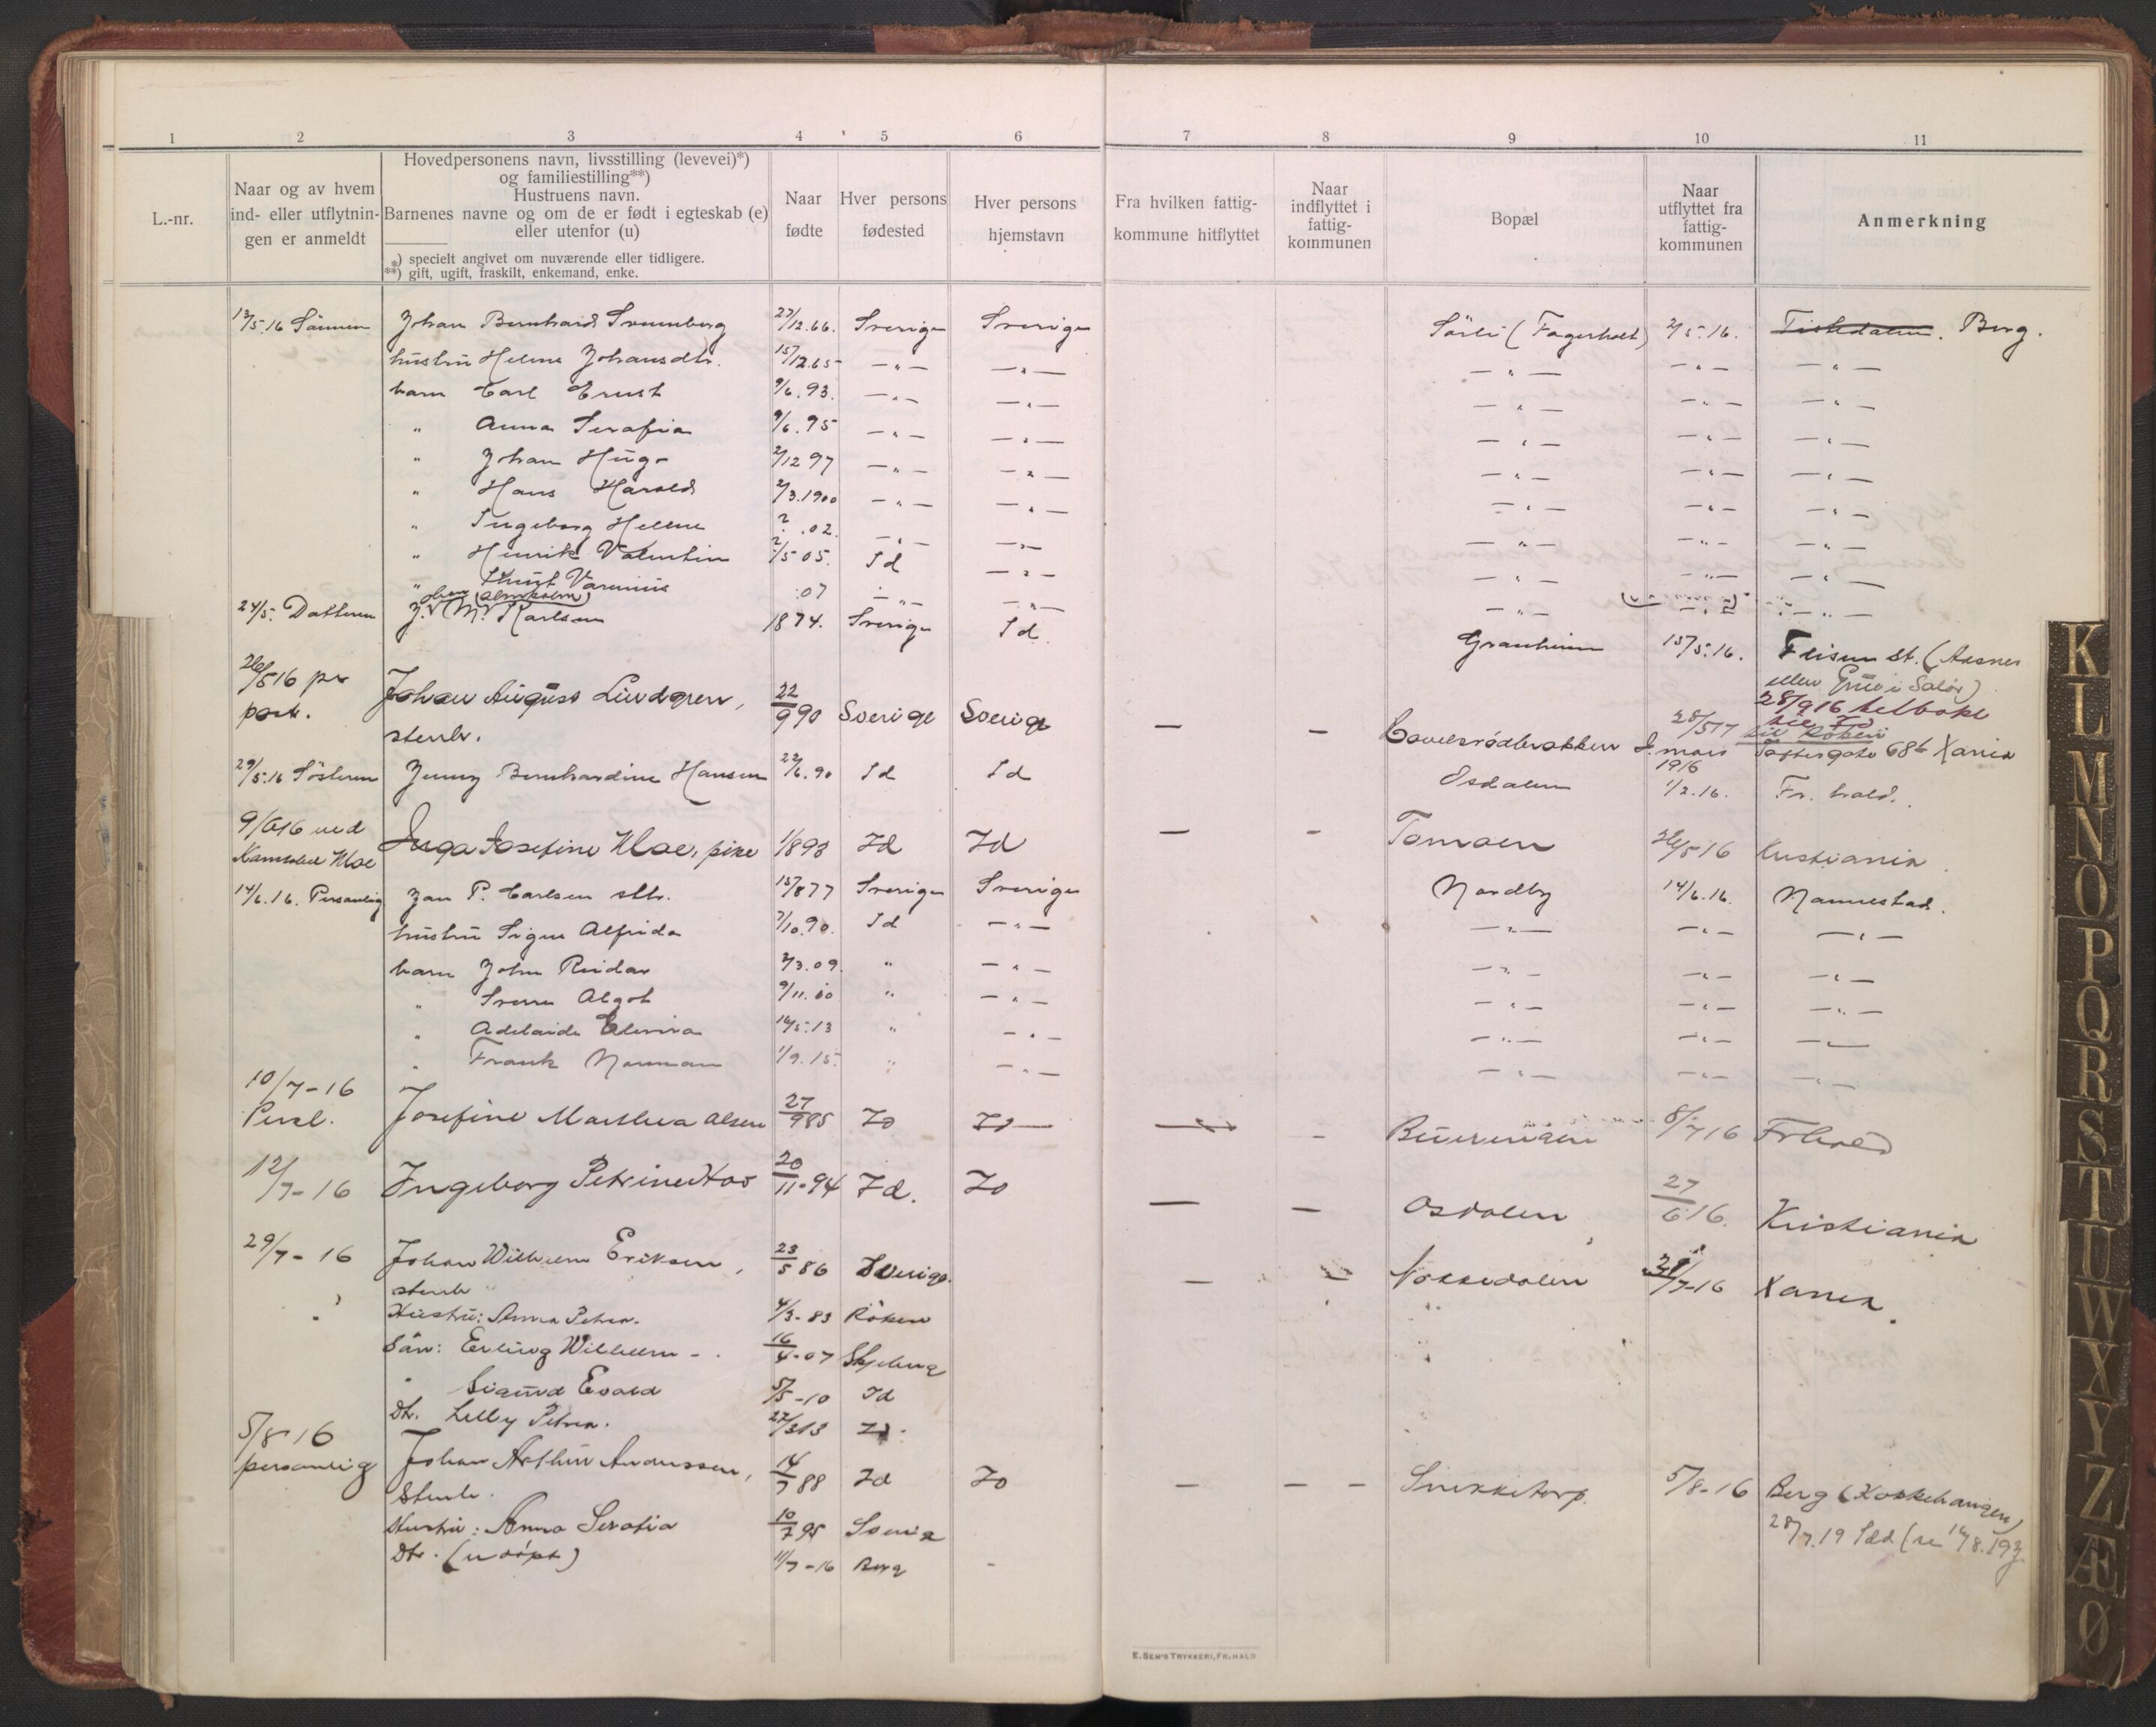 1 2 3 4 5 6 7 8 9 10 11
L.-nr.
Naar og av hvem
ind- eller utflytnin-
gen er anmeldt
Hovedpersonens navn, livsstilling (levevei)*)
og familiestilling**)
Hustruens navn.
Barnenes navne og om de er født i egteskab (e)
eller utenfor (u)
*) specielt angivet om nuværende eller tidligere.
**) gift, ugift, fraskilt, enkemand, enke.
Naar
fødte
Hver persons
fødested
Hver persons
hjemstavn
Fra hvilken fattig-
kommune hitflyttet
Naar
indflyttet i
fattig-
kommunen
Bopæl
Naar
utflyttet fra
fattig-
kommunen
Anmerkning
13/5.16 Sönnen Johan Bernhard 27/12.66. Sverige Sverige Sörli (Fagerholt) 2/5.16. Tistedalen. Berg.
hustru Helene Johansdtr. 15/12.65 — " — — " — — " — — " — — " —
barn Carl Ernst 9/6.93. — " — — " — — " — — " — — " —
" Anna Serafia 9/6.95 — " — — " — — " — — " — — " —
" Johan Hugo 2/12 97 — " — — " — — " — — " — — " —
" Hans Harald 2/3.1900 — " — — " — — " — — " — — " —
" Ingeborg Helene ? .02. — " — — " — — " — — " — — " —
" Henrik Valentin 2/5 05. Id — " — — " — — " — — " —
" Knut 07 — " — — " — — " — — " — — " —
24/5. Datteren J. M. Karlsen 1874. Sverige Id. Granheim 15/5.16. Flisen st. (Aasnes
eller Grue i Solör)
26/5 16 pr
post. Johan August Lindgren, 22/9 90 Sverige Sverige — —
stenh.
28/9 16 tilbake
til Id
28/5 17 til Röken
mars 1916 Toftesgate 68 b Xania
29/5.16 Søsteren Jenny Bernhardine Hansen 22/6.90 Id Id Osdalen 1/2.16. Fr. hald.
9/6 16 ved
Moe Inga Josefine Moe, pike Id Id — — 26/5 16 Kristiania
14/6.16. Personlig Jan P. Carlsen sth. 15/8 77 Sverige Sverige Nordby 14/6.16. Nannestad.
hustru Signe Alfrida 7/10.90. Id — " — — " — — " — — " —
barn John Reidar 2/3.09. " — " — — " — — " — — " —
" Sverre Algot 9/11.10 " — " — — " — — " — — " —
" Adelaide Elvira 14/5.13 " — " — — " — — " — — " —
" Frank Norman 1/9.15. " — " — — " — — " — — " —
10/7-16
Persl. Josefine Mathea Olsen 27/9 85 Id Id — — 8/7 16 Frhald
12/7-16 Ingeborg Petrine 20/11-94 Id. Id — — Osdalen 27/6 16. Kristiania
29/7-16 Johan Wilhelm Eriksen, 23/5 86 Sverige — — Nokkedalen /7-16 Xania.
stenh
Hustru: Anna Petrea. 4/3-83 Röken
Sön: Erling Wilhelm - 16/4-07 Skjeberg
" Sigurd Evald 5/5-10 Id
Dtr. Lilly Petrea. 27/3 13 Id.
5/8 16
personlig Johan Arthur Anderssen, 14/7 88 Id Id — — — 5/8-16 Berg
Stenh.
Hustru: Anna Serafia 10/7 95 Sverige 28/7.19
Dtr. (udöpt) 11/7-16 Berg -
E. SEM'S TRYKKERI, FR.HALD
K
L
M
N
O
P
Q
R
S
T
U
W
X
Y
Z
Æ
Ø